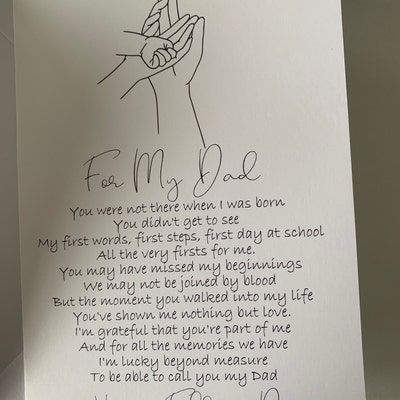 For My Dad
You were not there when I was born
You didn't get to see
My first words, first steps, first day at school
All the very firsts for me.
You may have missed my beginnings
We may not be joined by blood
But the moment you walked into my life
You've shown me nothing but love.
I'm grateful that you're part of me
And for all the memories we have
I'm lucky beyond measure
To be able to call you my Dad